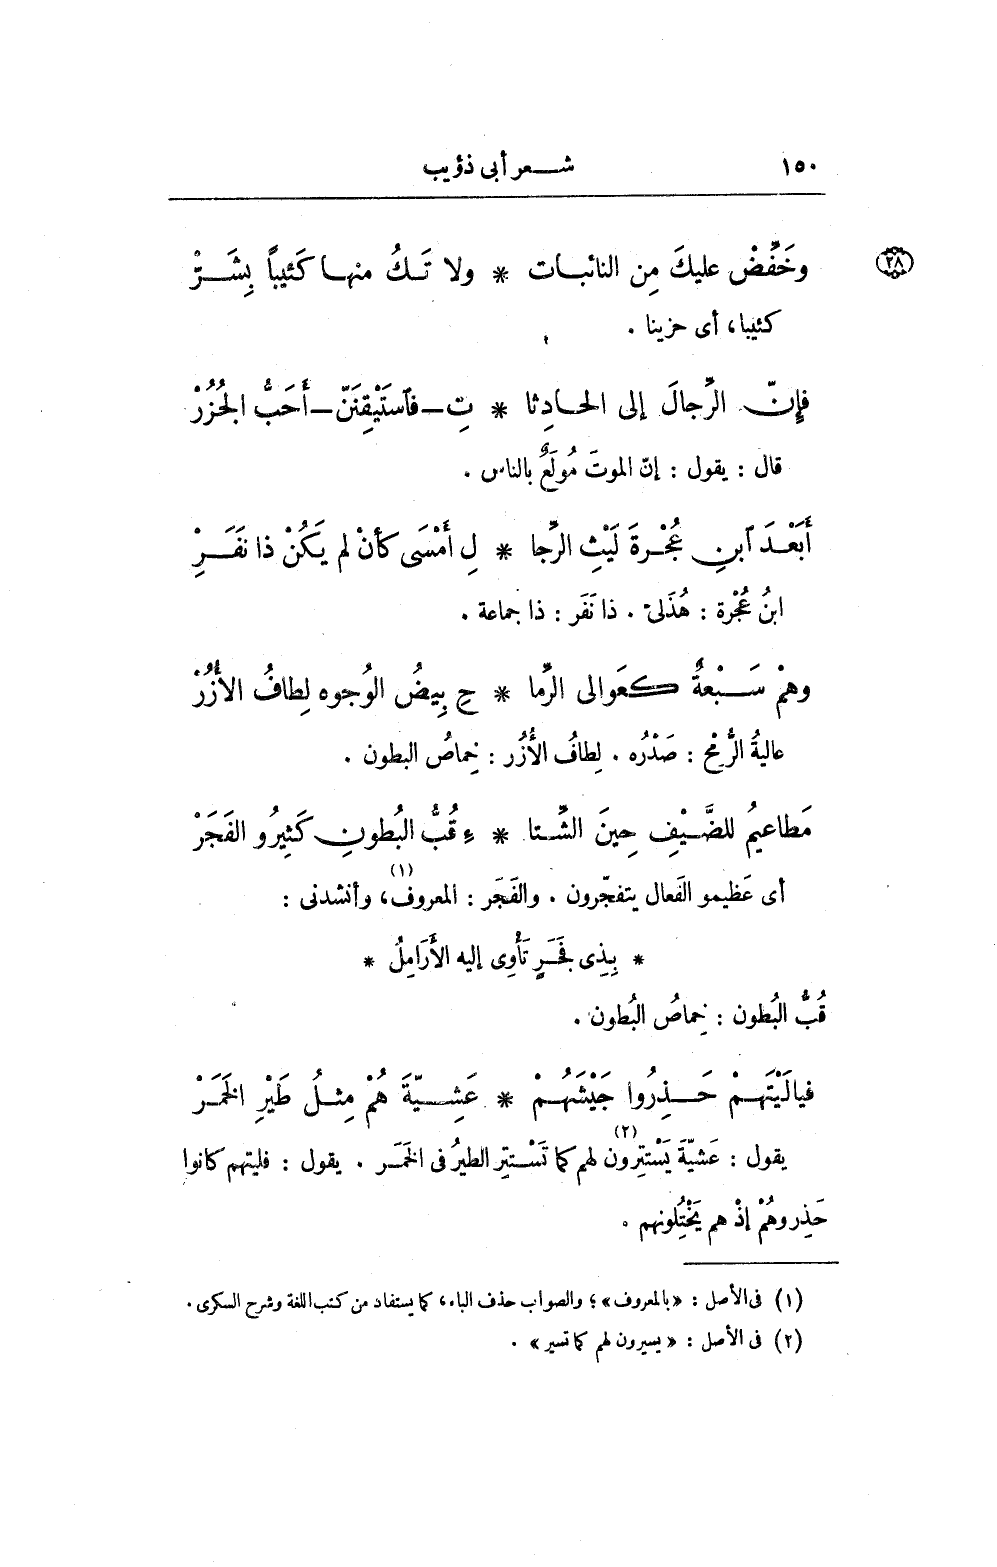 ١٥٠ شعر أبى ذؤيب
٢٨
وخَفِّضْ عليكَ مِن النائبات * ولا تَكُ منها كَئيباً بِشَرّْ
كئيبا، أى حزينا .
فإنّ الرِّجالَ إلى الحادِثا * تِ–فٱستَيْقِنَنّ–أَحَبُّ الجُزُرْ
قال : يقول : إنّ الموتَ مُولَعٌ بالناس .
أَبَعْدَ ٱبنِ عُجْرةَ لَيْثِ الرِّجا * لِ أمْسَى كأنْ لم يَكُنْ ذا نَفَرِْ
ابنُ عُجْرة : هُذَلىّ . ذا نَفَر : ذا جماعة .
وهمْ سَبْعةٌ كعَوالى الرِّما * حِ بِيضُ الوُجوه لِطافُ الأُزُرْ
عاليةُ الرُّمْح : صَدْرُه . لِطافُ الأُزُر : خِماصُ البطون .
مَطاعيمُ للضَّيْفِ حِينَ الشِّتا * ءِ قُبُّ البُطونِ كَثِيرُو الفَجَرْ
أى عَظيمو الفَعال يتفجّرون . والفَجَر : المعروف(١)، وأنشدنى :
* بِذِى فَجَرٍ تَأْوِى إليه الأَرَامِلُ *
قُبُّ البُطون : خِماصُ البُطون .
فيالَيْتَهمْ حَذِرُوا جَيْشَهُمْ * عَشِيّةَ هُمْ مِثلُ طَيْرِ الخَمَرْ
يقول : عَشيّةَ يَسْتترون(٢) لهم كما تَسْتتِر الطيرُ فى الخَمَر . يقول : فليتهم كانوا
حَذِروهُمْ إذْ هم يَخْتِلونهم .
(١) فى الأصل : «بالمعروف»؛ والصواب حذف الباء، كما يستفاد من كتب اللغة وشرح السكرى .
(٢) فى الأصل : « يسيرون لهم كما تسير » .